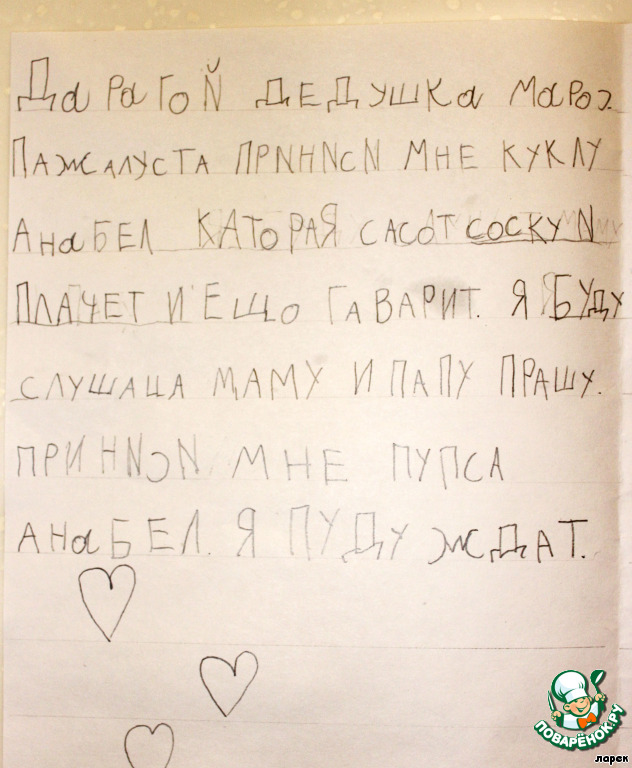 Дарагой дедушка мароз.
Пажалуста приниси мне куклу
Анабел катоРая сасот соску и
плачет и ещо гаварит. я буду
слушаца маму и папу прашу.
приниси мне пупса
анабел. Я пуду ждат.
ПОВАРЁНОК.РУ
ларек